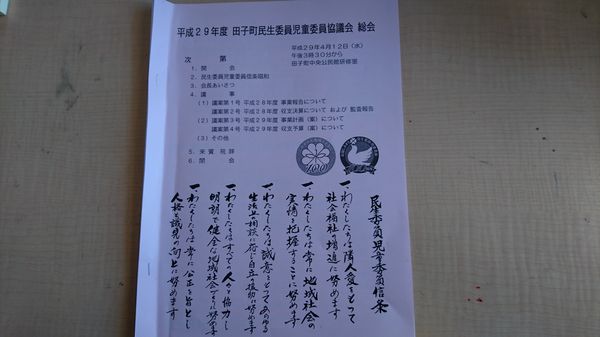 平成29年度 田子町民生委員児童委員協議会 総会
平成29年4月12日（水）
午後3時30分から
田子町中央公民館研修室
次 第
1. 開 会
2. 民生委員児童委員信条唱和
3. 会長あいさつ
4. 議 事
(1) 議案第1号 平成28年度 事業報告について
議案第2号 平成28年度 収支決算について および 監査報告
(2) 議案第3号 平成29年度 事業計画（案）について
議案第4号 平成29年度 収支予算（案）について
(3) その他
5. 来賓祝辞
6. 閉 会
100
民生委員児童委員信条
一、わたくしたちは隣人愛をもって
社会福祉の増進に努めます
一、わたくしたちは常に地域社会の
実情を把握することに努めます
一、わたくしたちは誠意をもってあらゆる
生活上の相談に応じ自立の援助に努めます
一、わたくしたちはすべての人々と協力し
明朗で健全な地域社会づくりに努めます
一、わたくしたちは常に公正を旨とし
人格と識見の向上に努めます